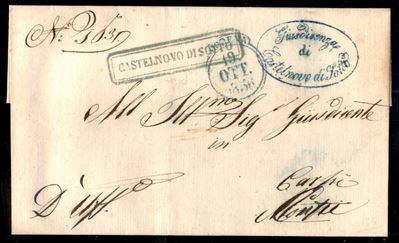 CASTELNOVO DI SOTTO
19
OTT.
Giusdicenza
di
Castelnovo di Sotto
All' Illmo Sig Giusdicente
in
Carpi
D'Uff.